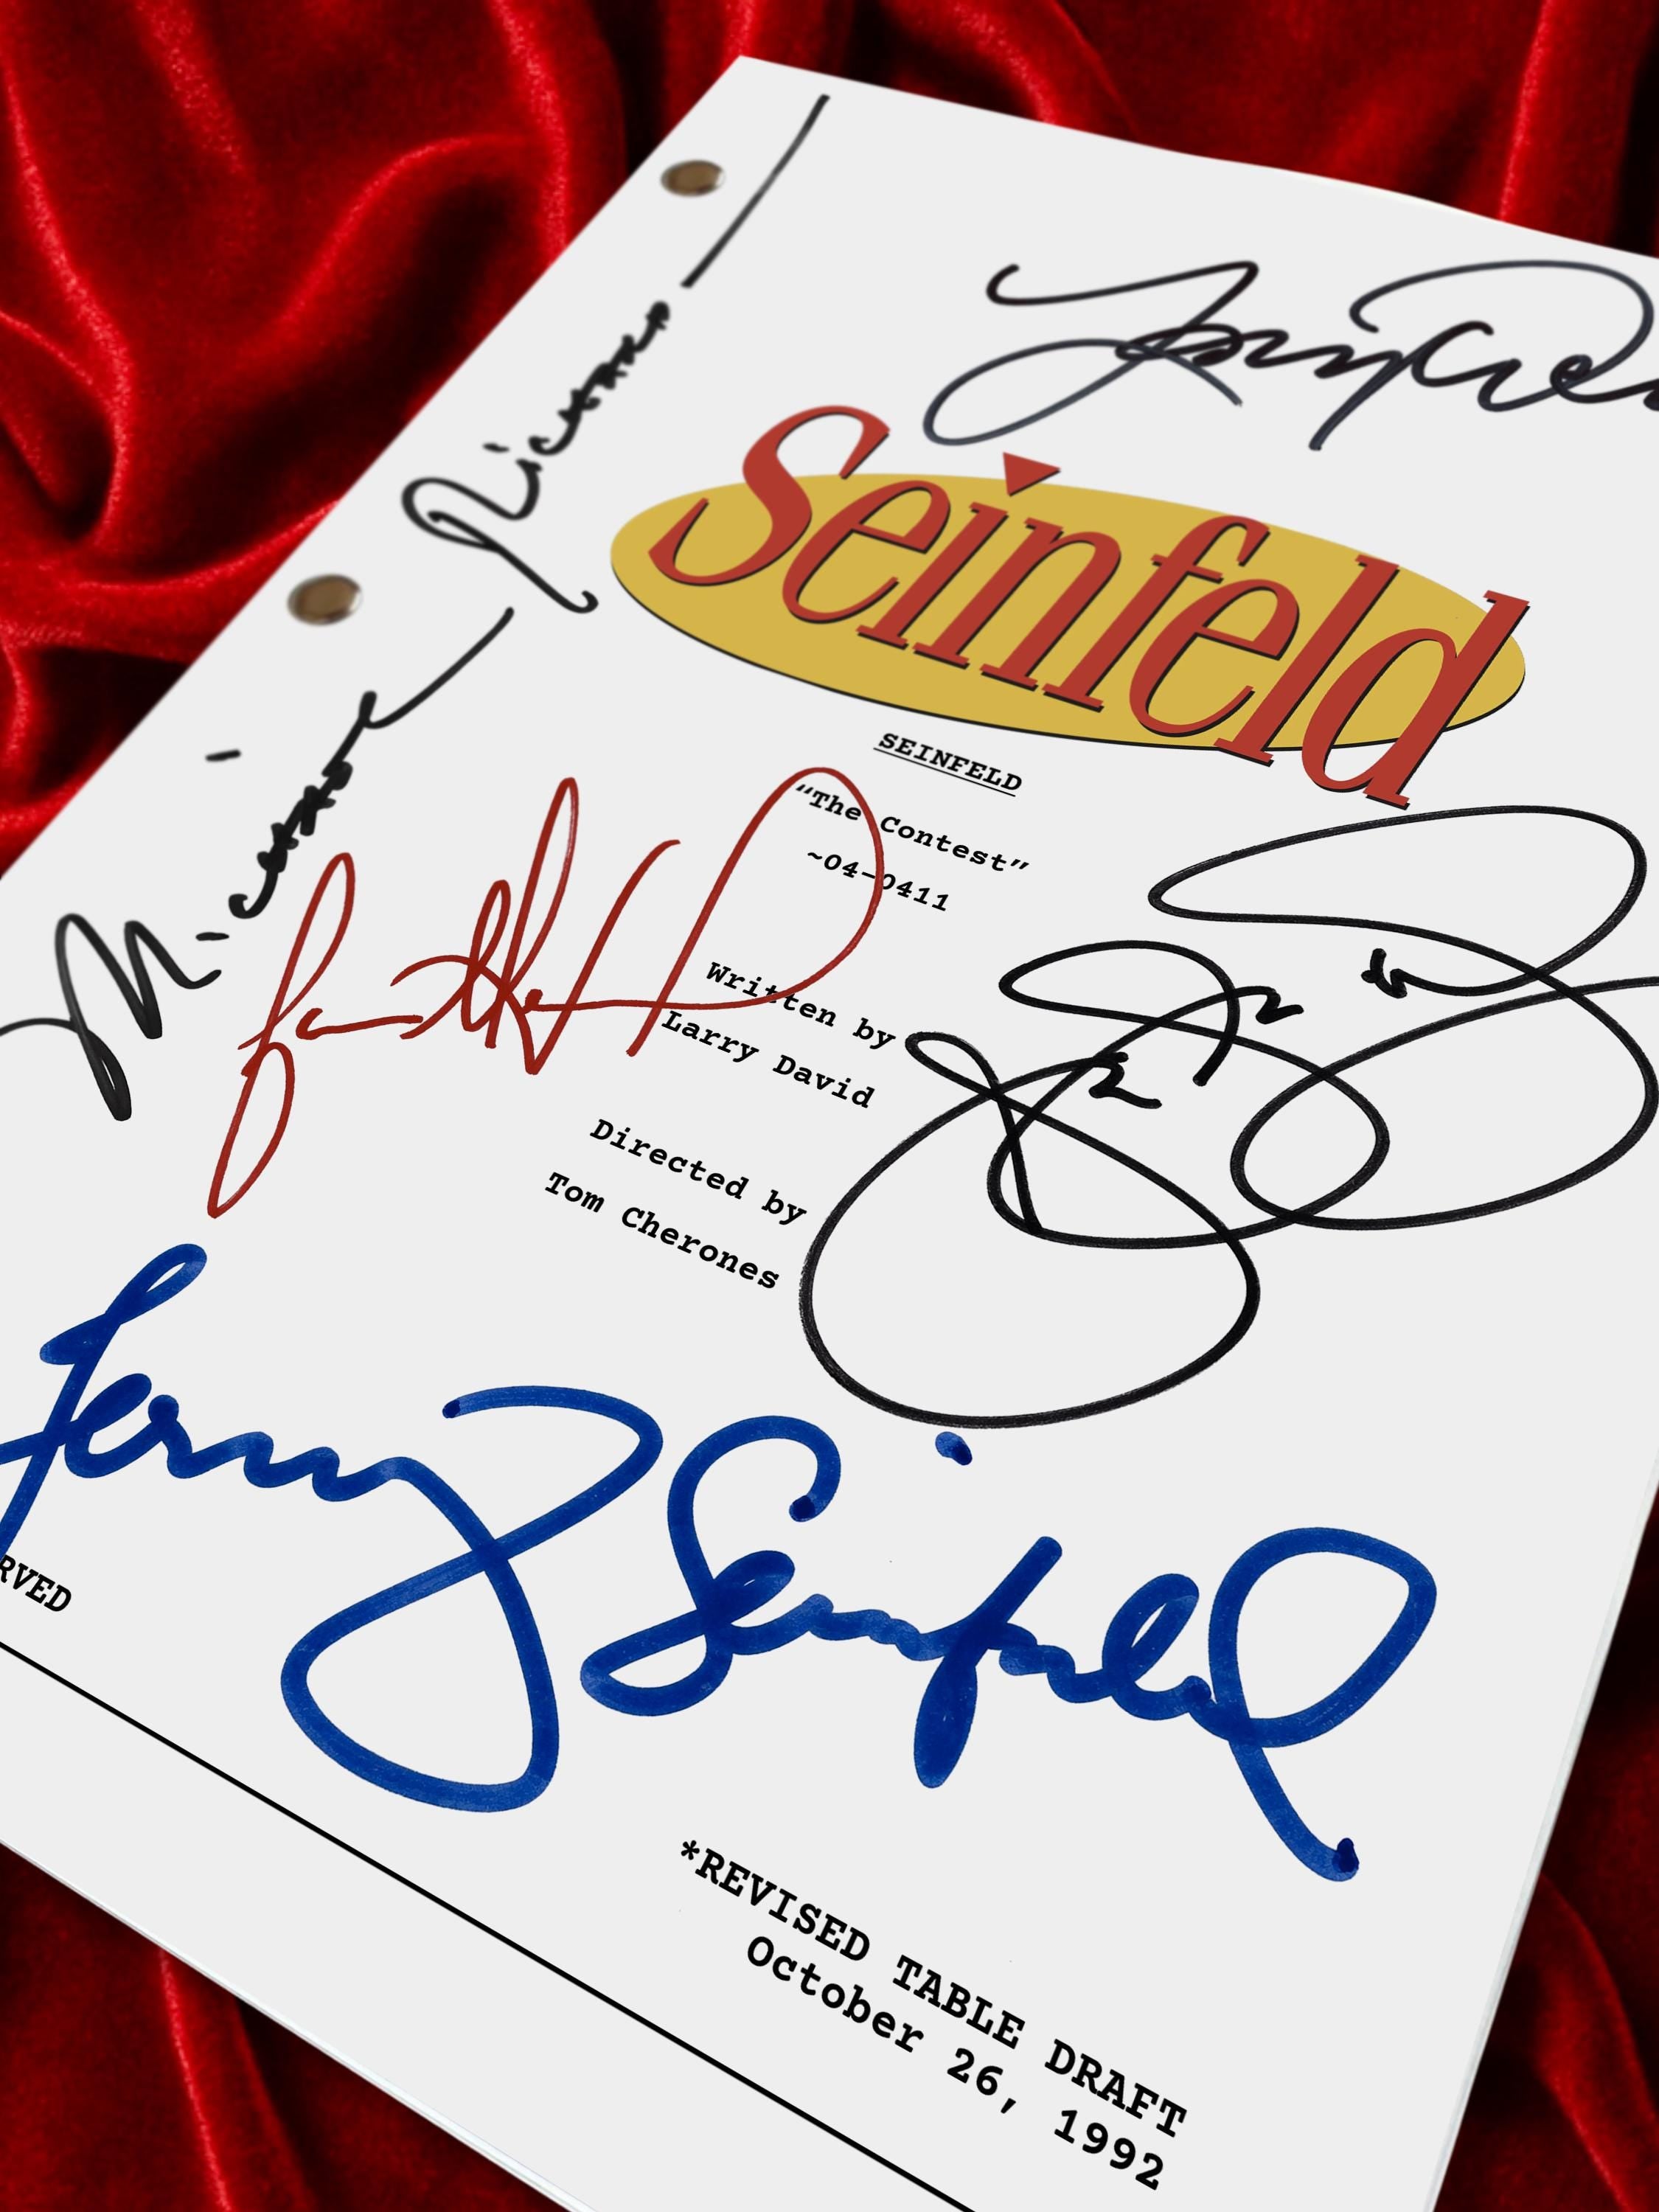 Seinfeld
SEINFELD
"The Contest"
~04-0411
Written by
Larry David
Directed by
Tom Cherones
Michael Richards
Jerry Seinfeld
RVED
*REVISED TABLE DRAFT
October 26, 1992